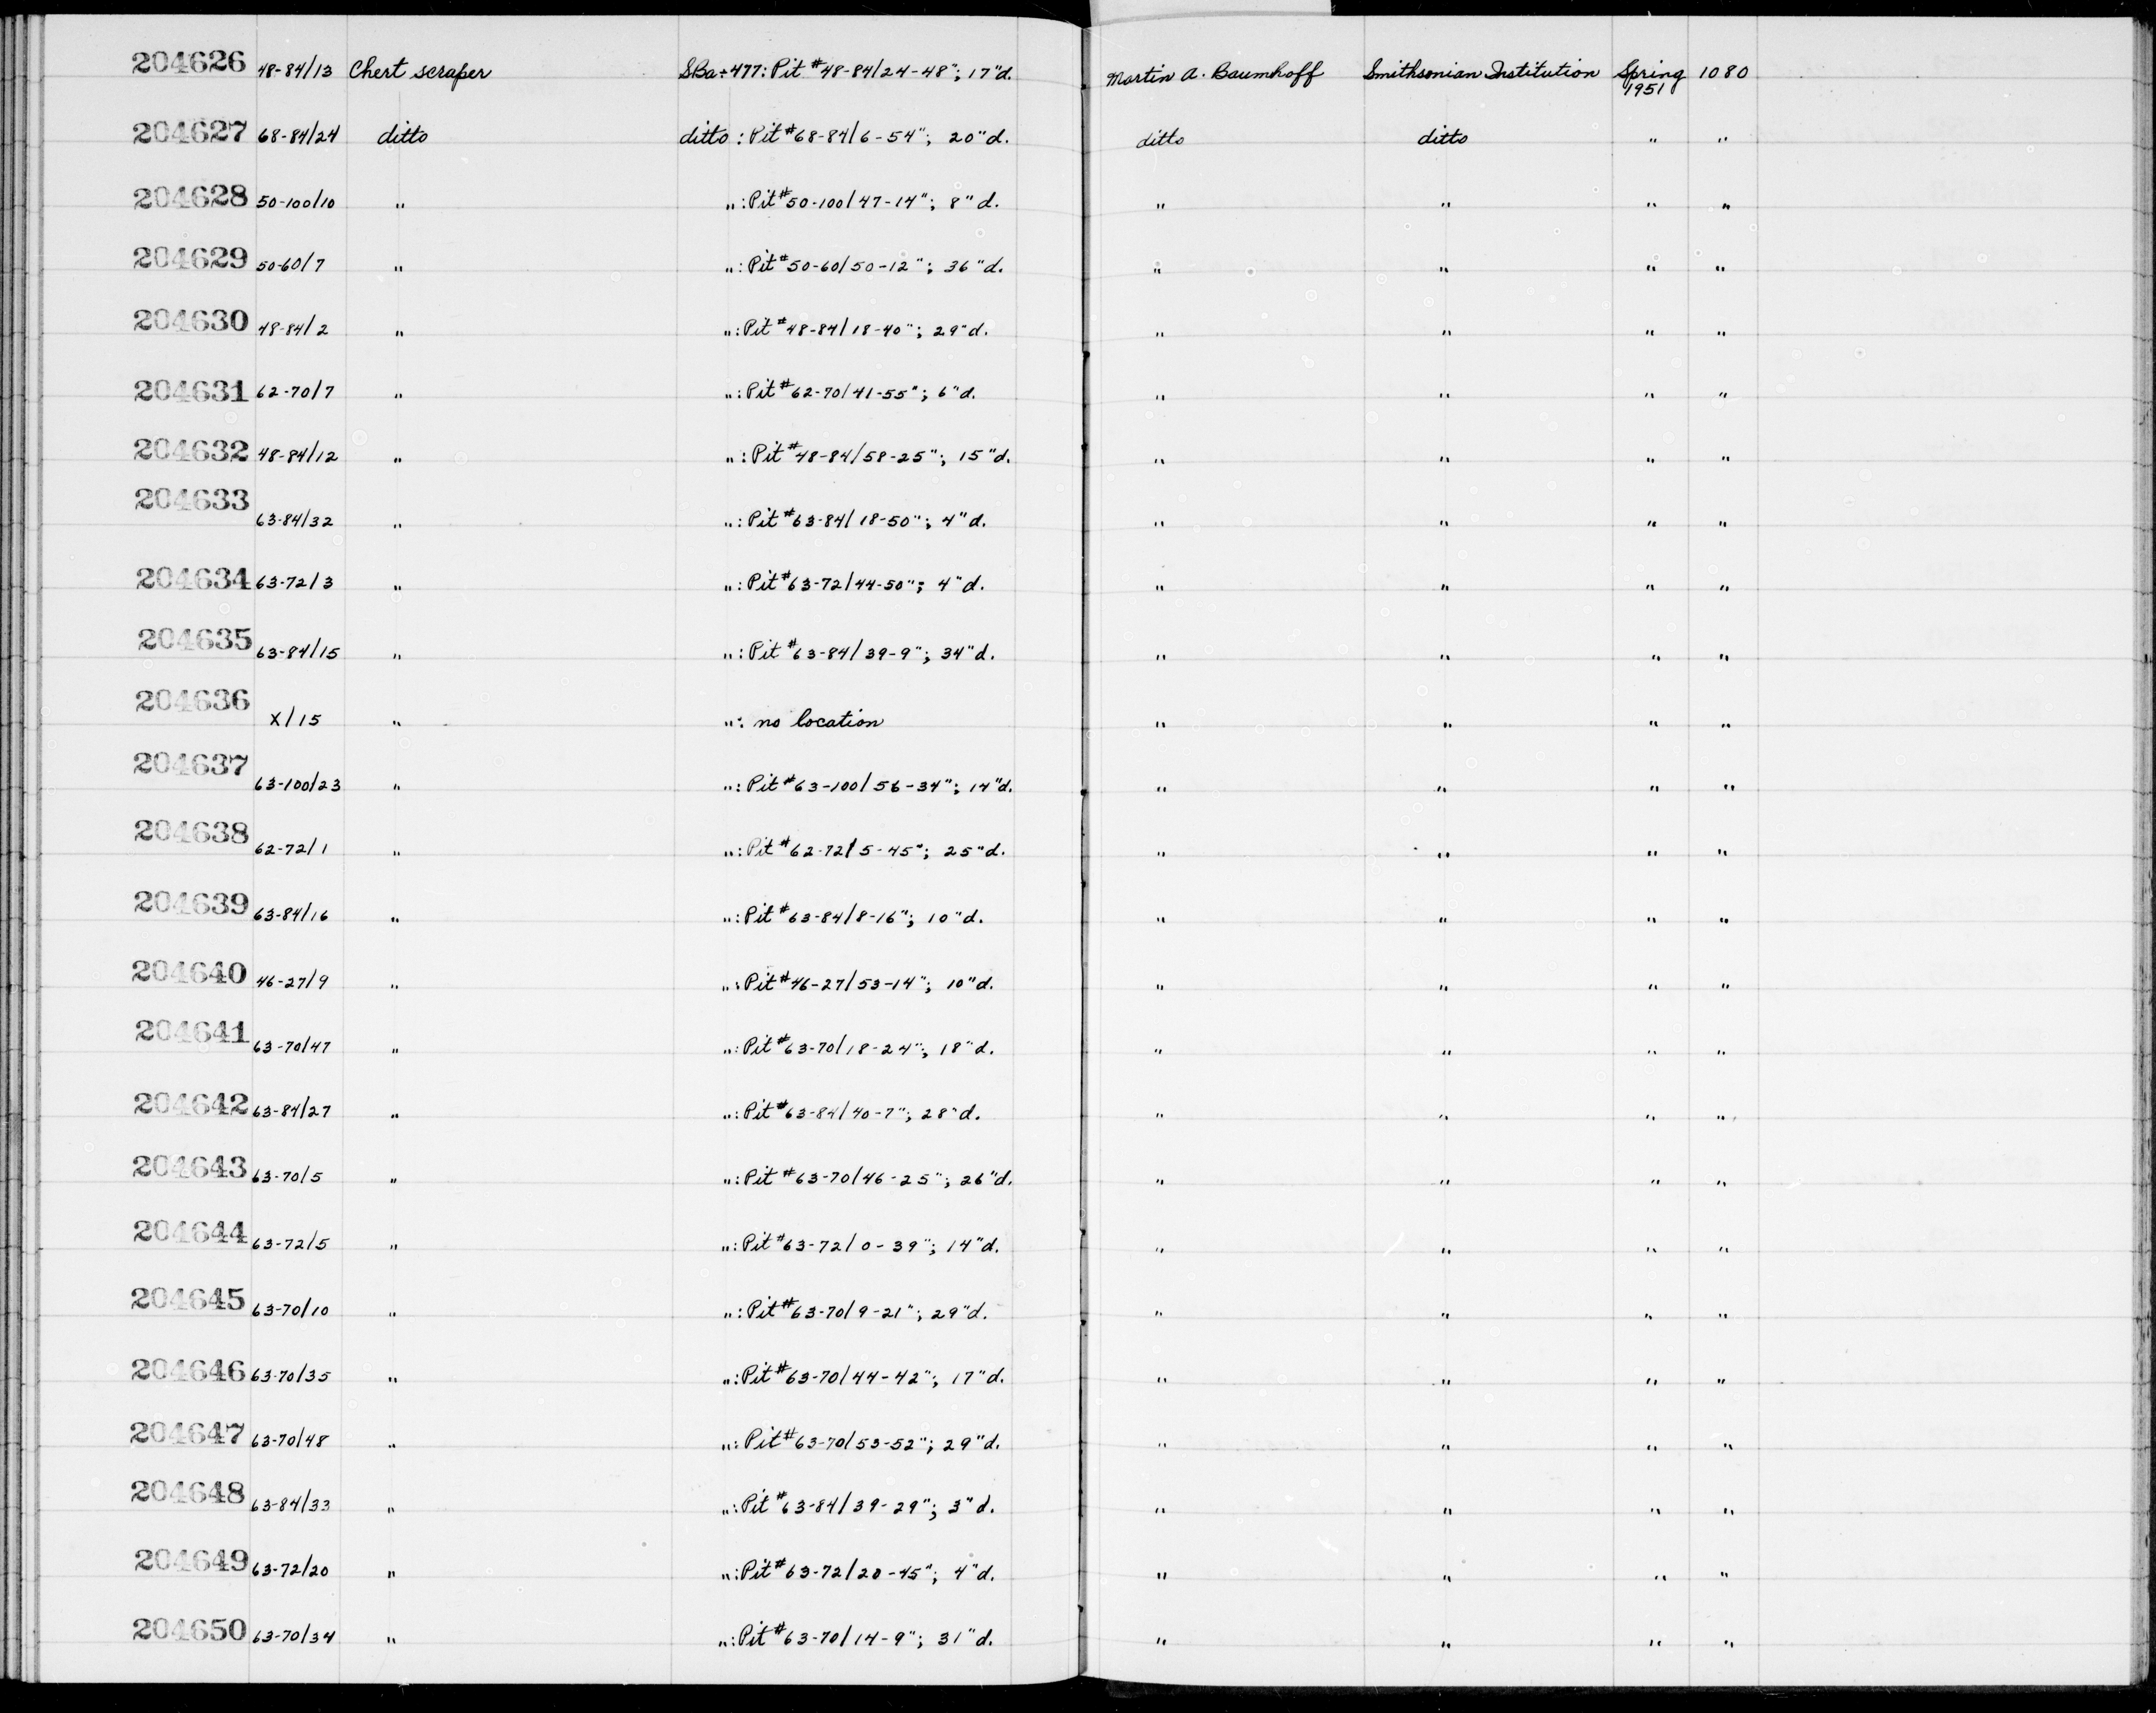 204626 48-84/13 Chert scraper SBa-477: Pit #48-84/24-48"; 17"d. Martin A. Baumhoff Smithsonian Institution Spring 1951 1080
204627 68-84/24 ditto ditto : Pit #68-84/6-54"; 20"d. ditto ditto " "
204628 50-100/10 " " : Pit #50-100/47-14"; 8"d. " " " "
204629 50-60/7 " " : Pit #50-60/50-12"; 36"d. " " " "
204630 48-84/2 " " : Pit #48-84/18-40"; 29"d. " " " "
204631 62-70/7 " " : Pit #62-70/41-55"; 6"d. " " " "
204632 48-84/12 " " : Pit #48-84/58-25"; 15"d. " " " "
204633 63-84/32 " " : Pit #63-84/18-50"; 4"d. " " " "
204634 63-72/3 " " : Pit #63-72/44-50"; 4"d. " " " "
204635 63-84/15 " " : Pit #63-84/39-9"; 34"d. " " " "
204636 X/15 " " : no location " " " "
204637 63-100/23 " " : Pit #63-100/56-34"; 14"d. " " " "
204638 62-72/1 " " : Pit #62-72/5-45"; 25"d. " " " "
204639 63-84/16 " " : Pit #63-84/8-16"; 10"d. " " " "
204640 46-27/9 " " : Pit #46-27/53-14"; 10"d. " " " "
204641 63-70/47 " " : Pit #63-70/18-24"; 18"d. " " " "
204642 63-84/27 " " : Pit #63-84/40-7"; 28"d. " " " "
204643 63-70/5 " " : Pit #63-70/46-25"; 26"d. " " " "
204644 63-72/5 " " : Pit #63-72/0-39"; 14"d. " " " "
204645 63-70/10 " " : Pit #63-70/9-21"; 29"d. " " " "
204646 63-70/35 " " : Pit #63-70/44-42"; 17"d. " " " "
204647 63-70/48 " " : Pit #63-70/53-52"; 29"d. " " " "
204648 63-84/33 " " : Pit #63-84/39-29"; 3"d. " " " "
204649 63-72/20 " " : Pit #63-72/20-45"; 4"d. " " " "
204650 63-70/34 " " : Pit #63-70/14-9"; 31"d. " " " "